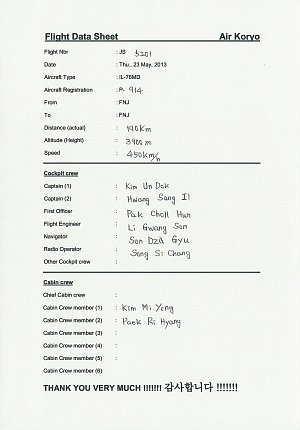 Flight Data Sheet Air Koryo
Flight Nbr : JS 5201
Date : Thu., 23 May, 2013
Aircraft Type : IL-76MD
Aircraft Registration : P- 914
From : FNJ
To : FNJ
Distance (actual) : 190Km
Altitude (Height) : 3900 m
Speed : 450km/h
Cockpit crew
Captain (1) : Kim Un Dok
Captain (2) : Hwang Sang Il
First Officer : Pak Choll Hun
Flight Engineer : Li Gwang Son
Navigator : Son Dzd Gyu
Radio Operator : Song Si Chang
Other Cockpit crew :
Cabin crew
Chief Cabin crew :
Cabin Crew member (1) : Kim Mi Yong
Cabin Crew member (2) : Paek Ri Hyang
Cabin Crew member (3) :
Cabin Crew member (4) :
Cabin Crew member (5) :
Cabin Crew member (6)
THANK YOU VERY MUCH !!!!!!! 감사합니다 !!!!!!!